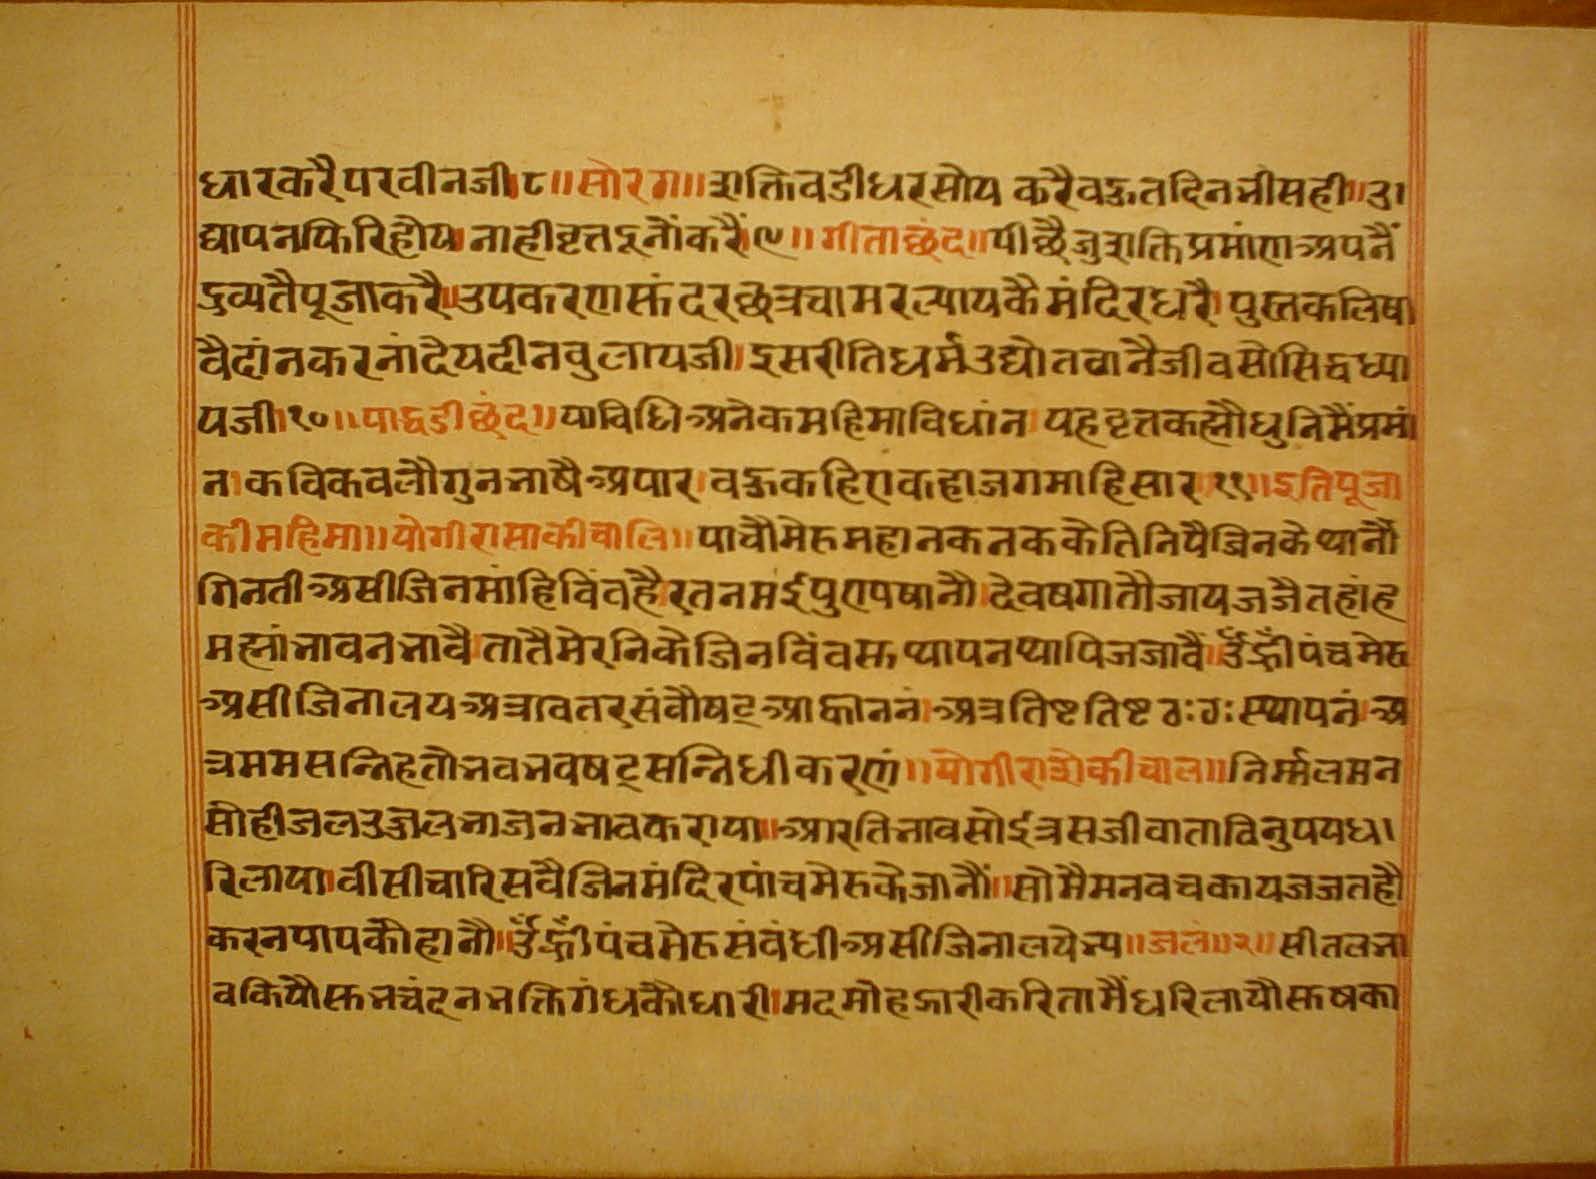 धारकरैपरवीनजी।८॥सोरठा॥शक्तिवडीधरसोय करैवऊतदिनभीसही॥उ।
द्यापनफिरिहोय।नाहीवृत्तदूनौंकरैं।९॥गीताछंद॥पीछैजुशक्तिप्रमांणअपनैं
द्रव्यतैपूजाकरै॥उपकरणसुंदरछत्रचामरल्यायकैमंदिरधरै।पुस्तकलिषा
वैदांनकरनांदेयदीनवुलायजी।इसरीतिधर्मउद्योतठानैजीवसोसिद्धध्या
यजी।१०॥पाद्धडीछंद॥याविधिअनेकमहिमाविधांन।यहवृत्तकह्मौधुनिमैंप्रमां
न।कविकवलौगुनभाषैअपार।वऊकहिएकहाजगमाहिसार।११॥इतिपूजा
कीमहिमा॥योगीरासाकीचालि॥पाचौमेरुमहानकनककेतिनिपैजिनकेथानौं
गिनतीअसीजिनमांहिविंवहैरतनमईपुएपषानौ।देवषगातौजायजजैतहांह
मह्मांभावनभावै।तातैमेरनिकेजिनविंवसुथापनथापिजजावैं॥उँह्रीँपंचमेरु
असीजिनालयअत्रावतरसंवौषट्आह्वाननं।अत्रतिष्टतिष्टठःठःस्थापनं।अ
त्रममसन्निहतोभवभवषट्सन्निधीकरणं॥योगीराशेकीचाल॥निर्म्मलमन
सोहीजलउज्जलभाजनभावकराया॥आरतिभावसोईत्रसजीवाताविनुपयधा।
रिलाया।वीसीचारिसवैजिनमंदिरपांचमेरुकेजानौं॥सोमैमनवचकायजजतहौ
करनपापकौहानौ॥उँह्रीँपंचमेरुसंवंधीअसीजिनालयेभ्य॥जलं॥२॥सीतलभा
वकियौसुभचंदनभक्तिगंधकौधारी।मदमोहजारीकरितामैंधरिलायौसुषका